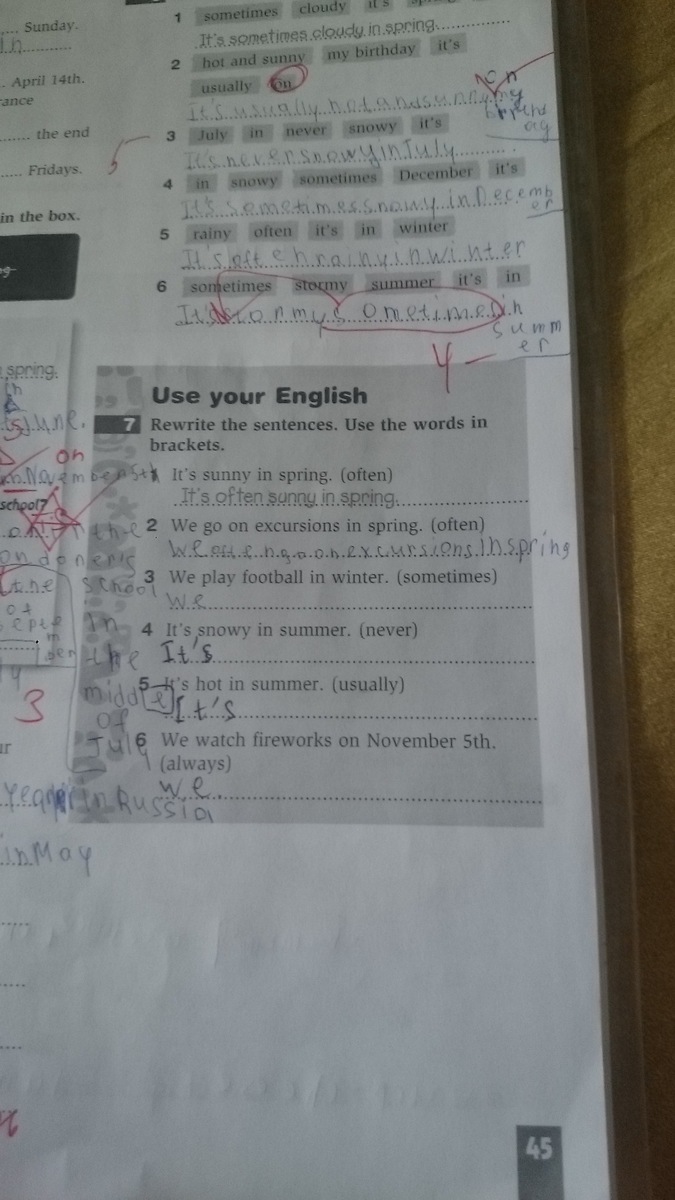 .... Sunday.
1 sometimes cloudy it's
It's sometimes cloudy in spring.
2 hot and sunny my birthday it's
. April 14th.
usually on
on
It's usually hot and sunny my
3 July in never snowy it's
...... the end
5
It's never snowy in July
..... Fridays.
4 in snowy sometimes December it's
It's sometimes snowy in Decemb
er
in the box.
5 rainy often it's in winter
It's often rainy in winter
6 sometimes stormy summer it's in
It's stormy sometimes in
summ
er
4
spring.
Use your English
7 Rewrite the sentences. Use the words in
brackets.
June.
on
in November 5th
It's sunny in spring. (often)
It's often sunny in spring.
school?
2 We go on excursions in spring. (often)
We often go on excursions in spring
3 We play football in winter. (sometimes)
the school
We
of
in
the
4 It's snowy in summer. (never)
It's
middle
of
July
5 It's hot in summer. (usually)
It's
3
6 We watch fireworks on November 5th.
(always)
We
year in Russia
in May
45